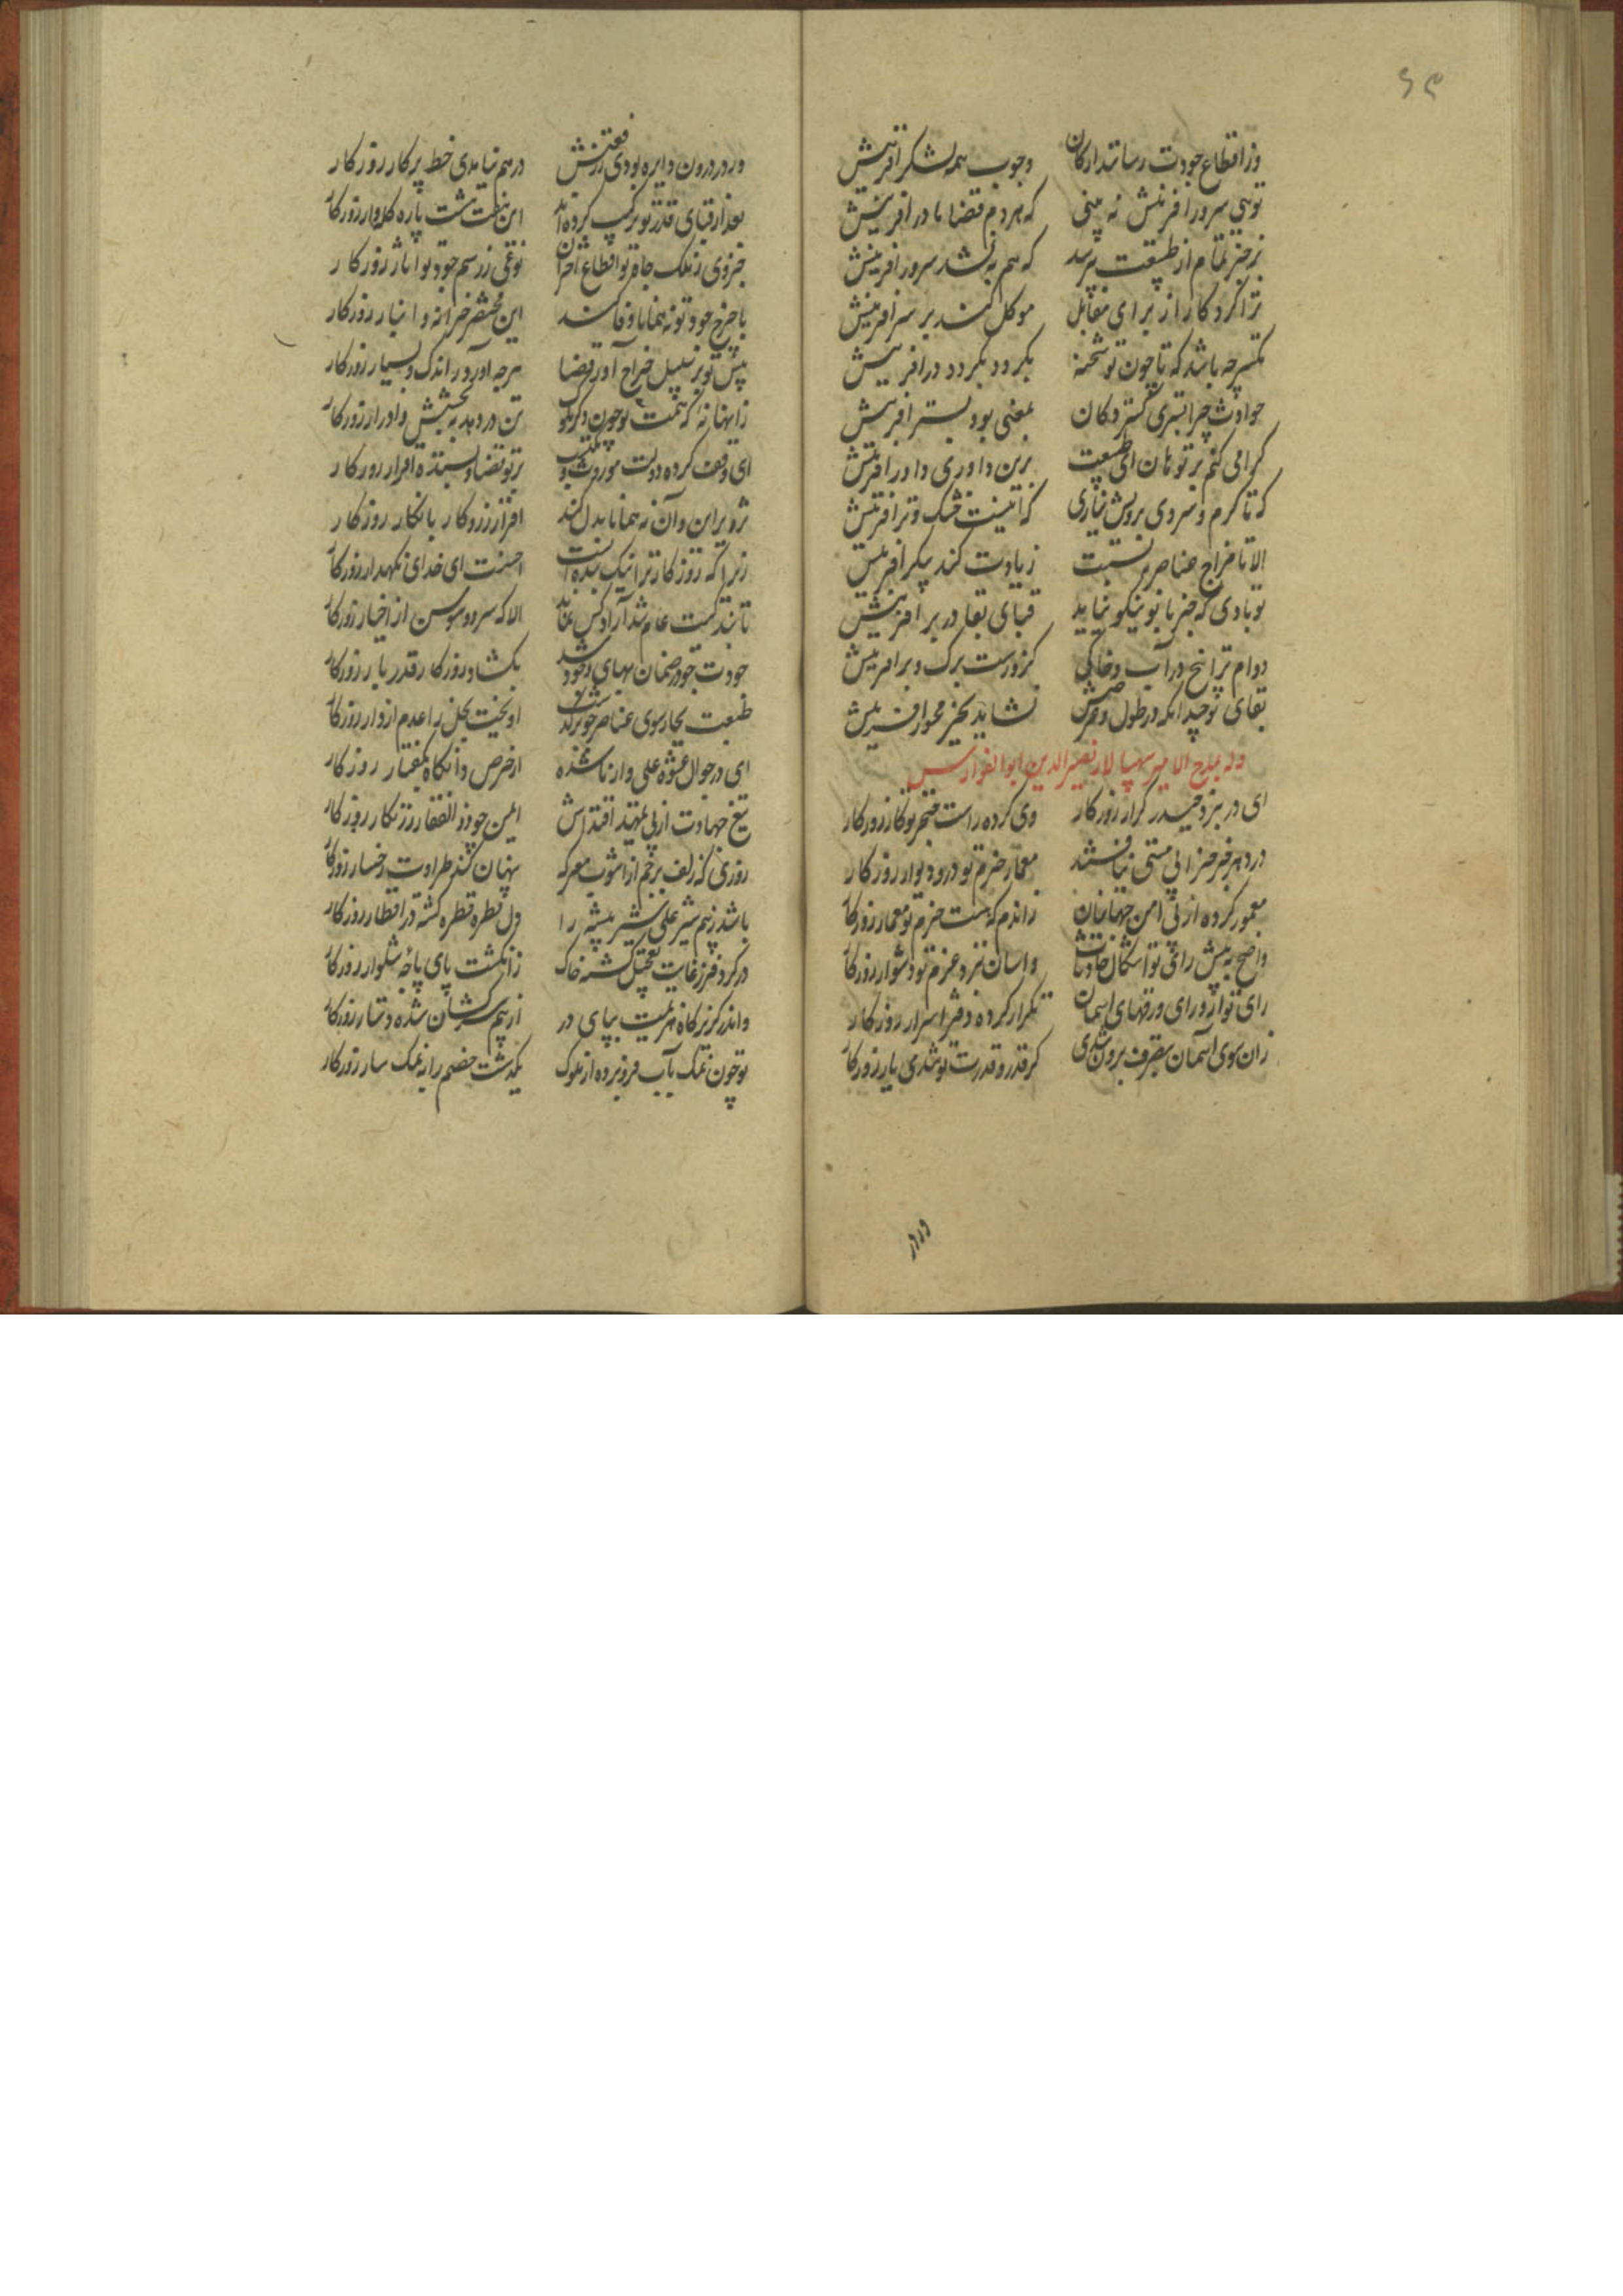 ۶۳
وز اقطاع جودت رسانند ارکان وجوب همه لشکر افرینش
تویی سرور افرینش نه بینی که هر دم قضا با در افرینش
نرنجد تمام از طبیعت بپرسد که هم به نشد سرور افرینش
ترا کردکار از برای مقابل موکل کند بر سر افرینش
ستم چه باشد که تا چون تو شحنه بگردد بگردد در افرینش
حوادث چرا بستری گسترد کان بمعنی بود بستر افرینش
گرامی کنم بر تو هان ای طبیعت برین داوری داور افرینش
که تا گرم و سردی برویش نیاری که اینست خشک و تر افرینش
الا تا مزاج عناصر بنسبت زیادت کند پیکر افرینش
تو بادی که جز با تو نیکو نیاید قبای بقا در بر افرینش
دوام ترا بیخ در آب و خاکی کزو رست برگ و بر افرینش
بقای تو چندانکه در طول و عرضش نشاید بجز محور افرینش
وله بمدح الامیر سپهسالار نصیر الدین ابو الفوارس
ای در نبرد حیدر کرار روزکار وی کرده راست خنجر تو کار روزکار
معمور کرده از پی امن جهانیان معمار حزم تو در و دیوار روزکار
در دهر جز خرابی مستی نیافتند زاندم که هست حزم تو معمار روزکار
واضح به پیش رای تو اشکال حادثات واسان بنزد عزم تو دشوار روزکار
رای تو از ورای ورقهای اسمان تکرار کرده دفتر اسرار روزکار
زان سوی اسمان بتصرف برون شدی گر قدر و قدرت تو شدی یار روزکار
ور در درون دایره بودی ز رفعتش درهم نیامدی خط پرکار روزکار
بعد از قبای قدر تو ترکیب کرده اند این هفت هشت پاره کله وار روزکار
جزوی ز ملک جاه تو اقطاع اختران نوعی ز رسم جود تو اثار روزکار
با خرج جود تو نه همانا وفا کند این مختصر خزانه و انبار روزکار
پیش تو بر سبیل خراج آورد قضا هرچه آورد ز اندک و بسیار روزکار
زانها نه که همت تو چون دگر ملوک تن دردهد به بخشش و ادرار روزکار
ای وقف کرده دولت موروث و مکتسب بر تو قضا و بستده اقرار روزکار
زو بر این و آن نه همانا بدل کند اقرار روزکار بانکار روزکار
زیرا که روزکار ترا نیک بنده است احسنت ای خدای نگهدار روزکار
تا بندگیت عام شد آزاد کس نماند الا که سرو و سوسن از احرار روزکار
جودت چو در ضمان بهای وجود شد بکشاد روزکار در بار روزکار
طبعت بچار سوی عناصر چو بر گذشت اویخت بخل را عدم از دار روزکار
ای در جوال عشوه علی وار ناشده از حرص دانگانه بگفتار روزکار
تیغ جهادت از پی تمهید اقتداش ایمن چو ذوالفقار ز زنگار روزکار
روزی که زلف پرچم از اشوب معرکه پنهان کند طراوت رخسار روزکار
باشد ز بیم شیر علم شیر بیشه را دل قطره قطره گشته در اقطار روزکار
در کر و فر ز غایت تعجیل گشته خاک ز انگشت پای پاچه شلوار روزکار
واندر گریزگاه هزیمت بپای در از بیم سرکشان شده دستار روزکار
تو چون نهنگ بآب فرو برده از ملوک یکدشت خصم را به نمک سار روزکار